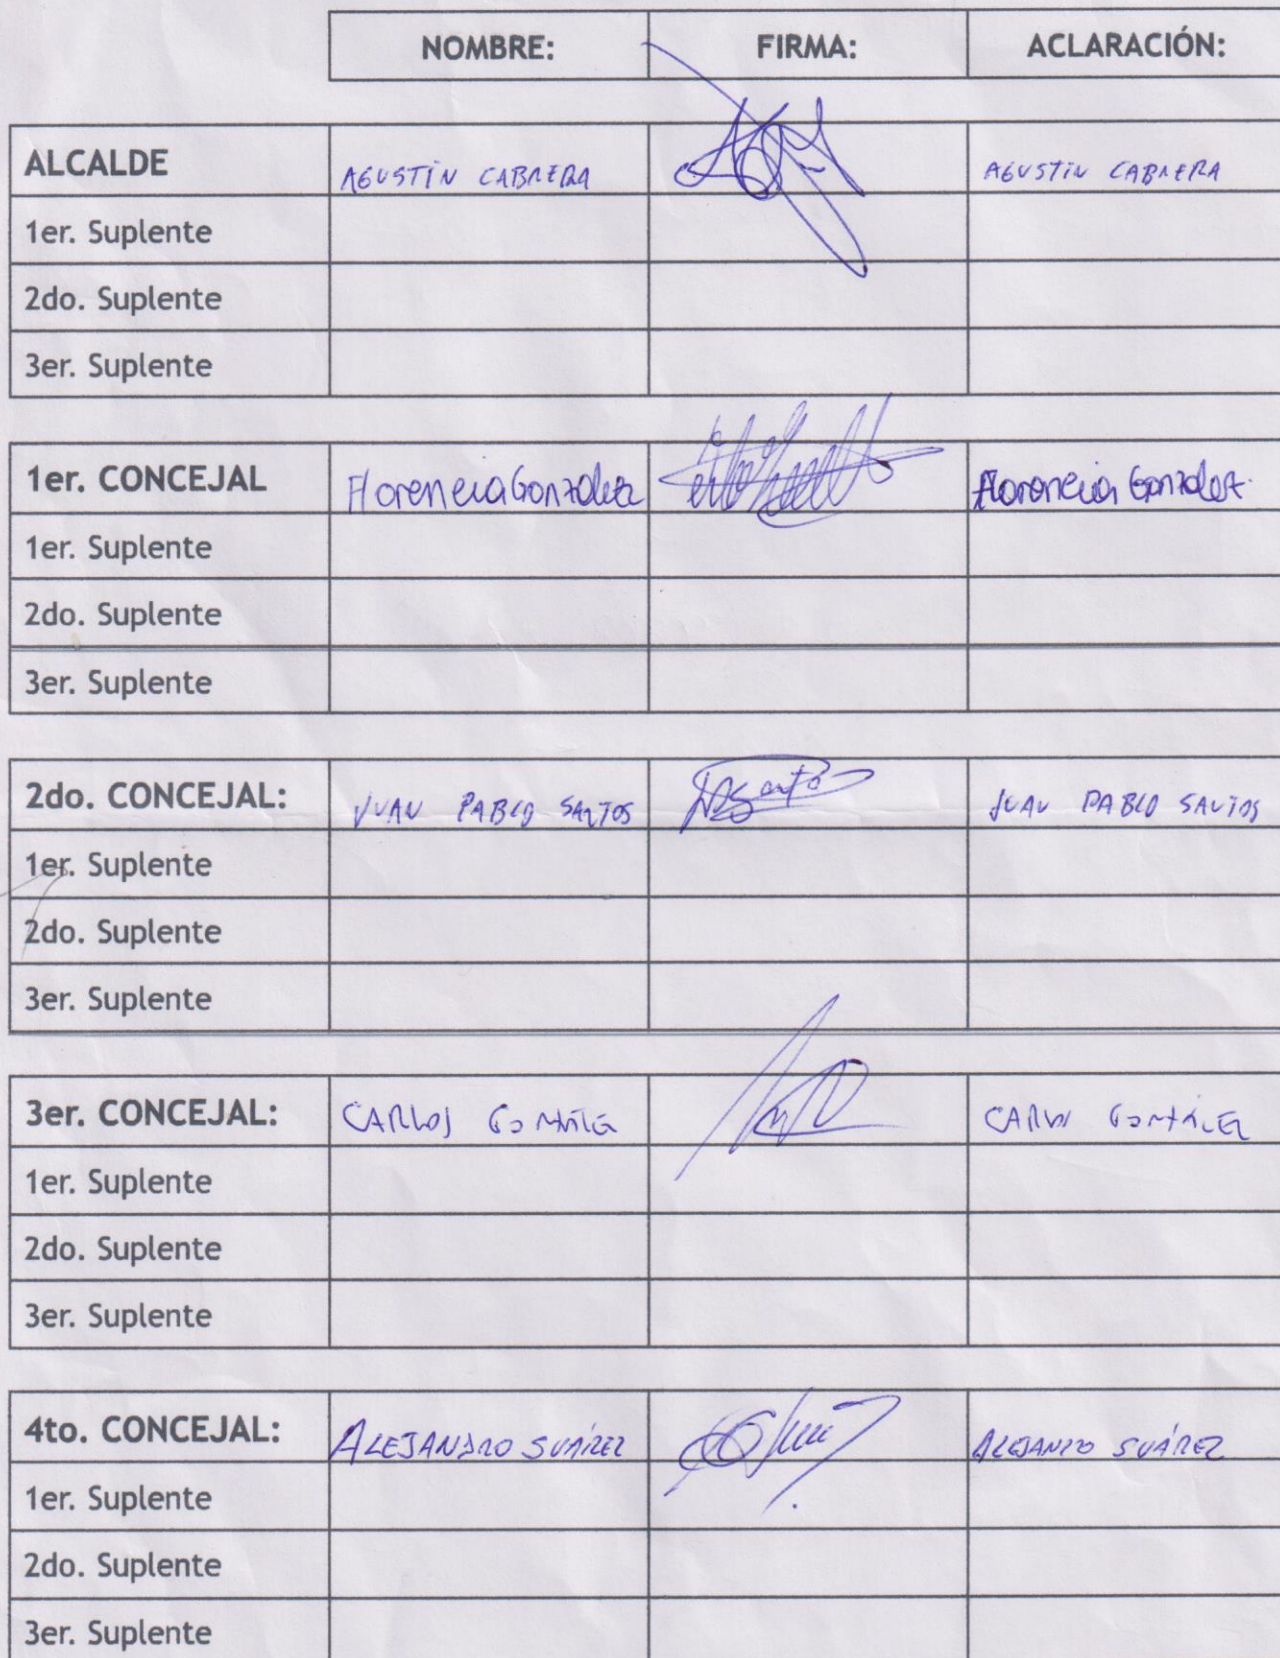 NOMBRE: FIRMA: ACLARACIÓN:
ALCALDE AGUSTÍN CABRERA AGUSTÍN CABRERA
1er. Suplente
2do. Suplente
3er. Suplente
1er. CONCEJAL Florencia Gonzalez Florencia Gonzalez.
1er. Suplente
2do. Suplente
3er. Suplente
2do. CONCEJAL: JUAN PABLO SANTOS JUAN PABLO SANTOS
1er. Suplente
2do. Suplente
3er. Suplente
3er. CONCEJAL: CARLOS GONZÁLEZ CARLOS GONZÁLEZ
1er. Suplente
2do. Suplente
3er. Suplente
4to. CONCEJAL: ALEJANDRO SUÁREZ ALEJANDRO SUÁREZ
1er. Suplente
2do. Suplente
3er. Suplente